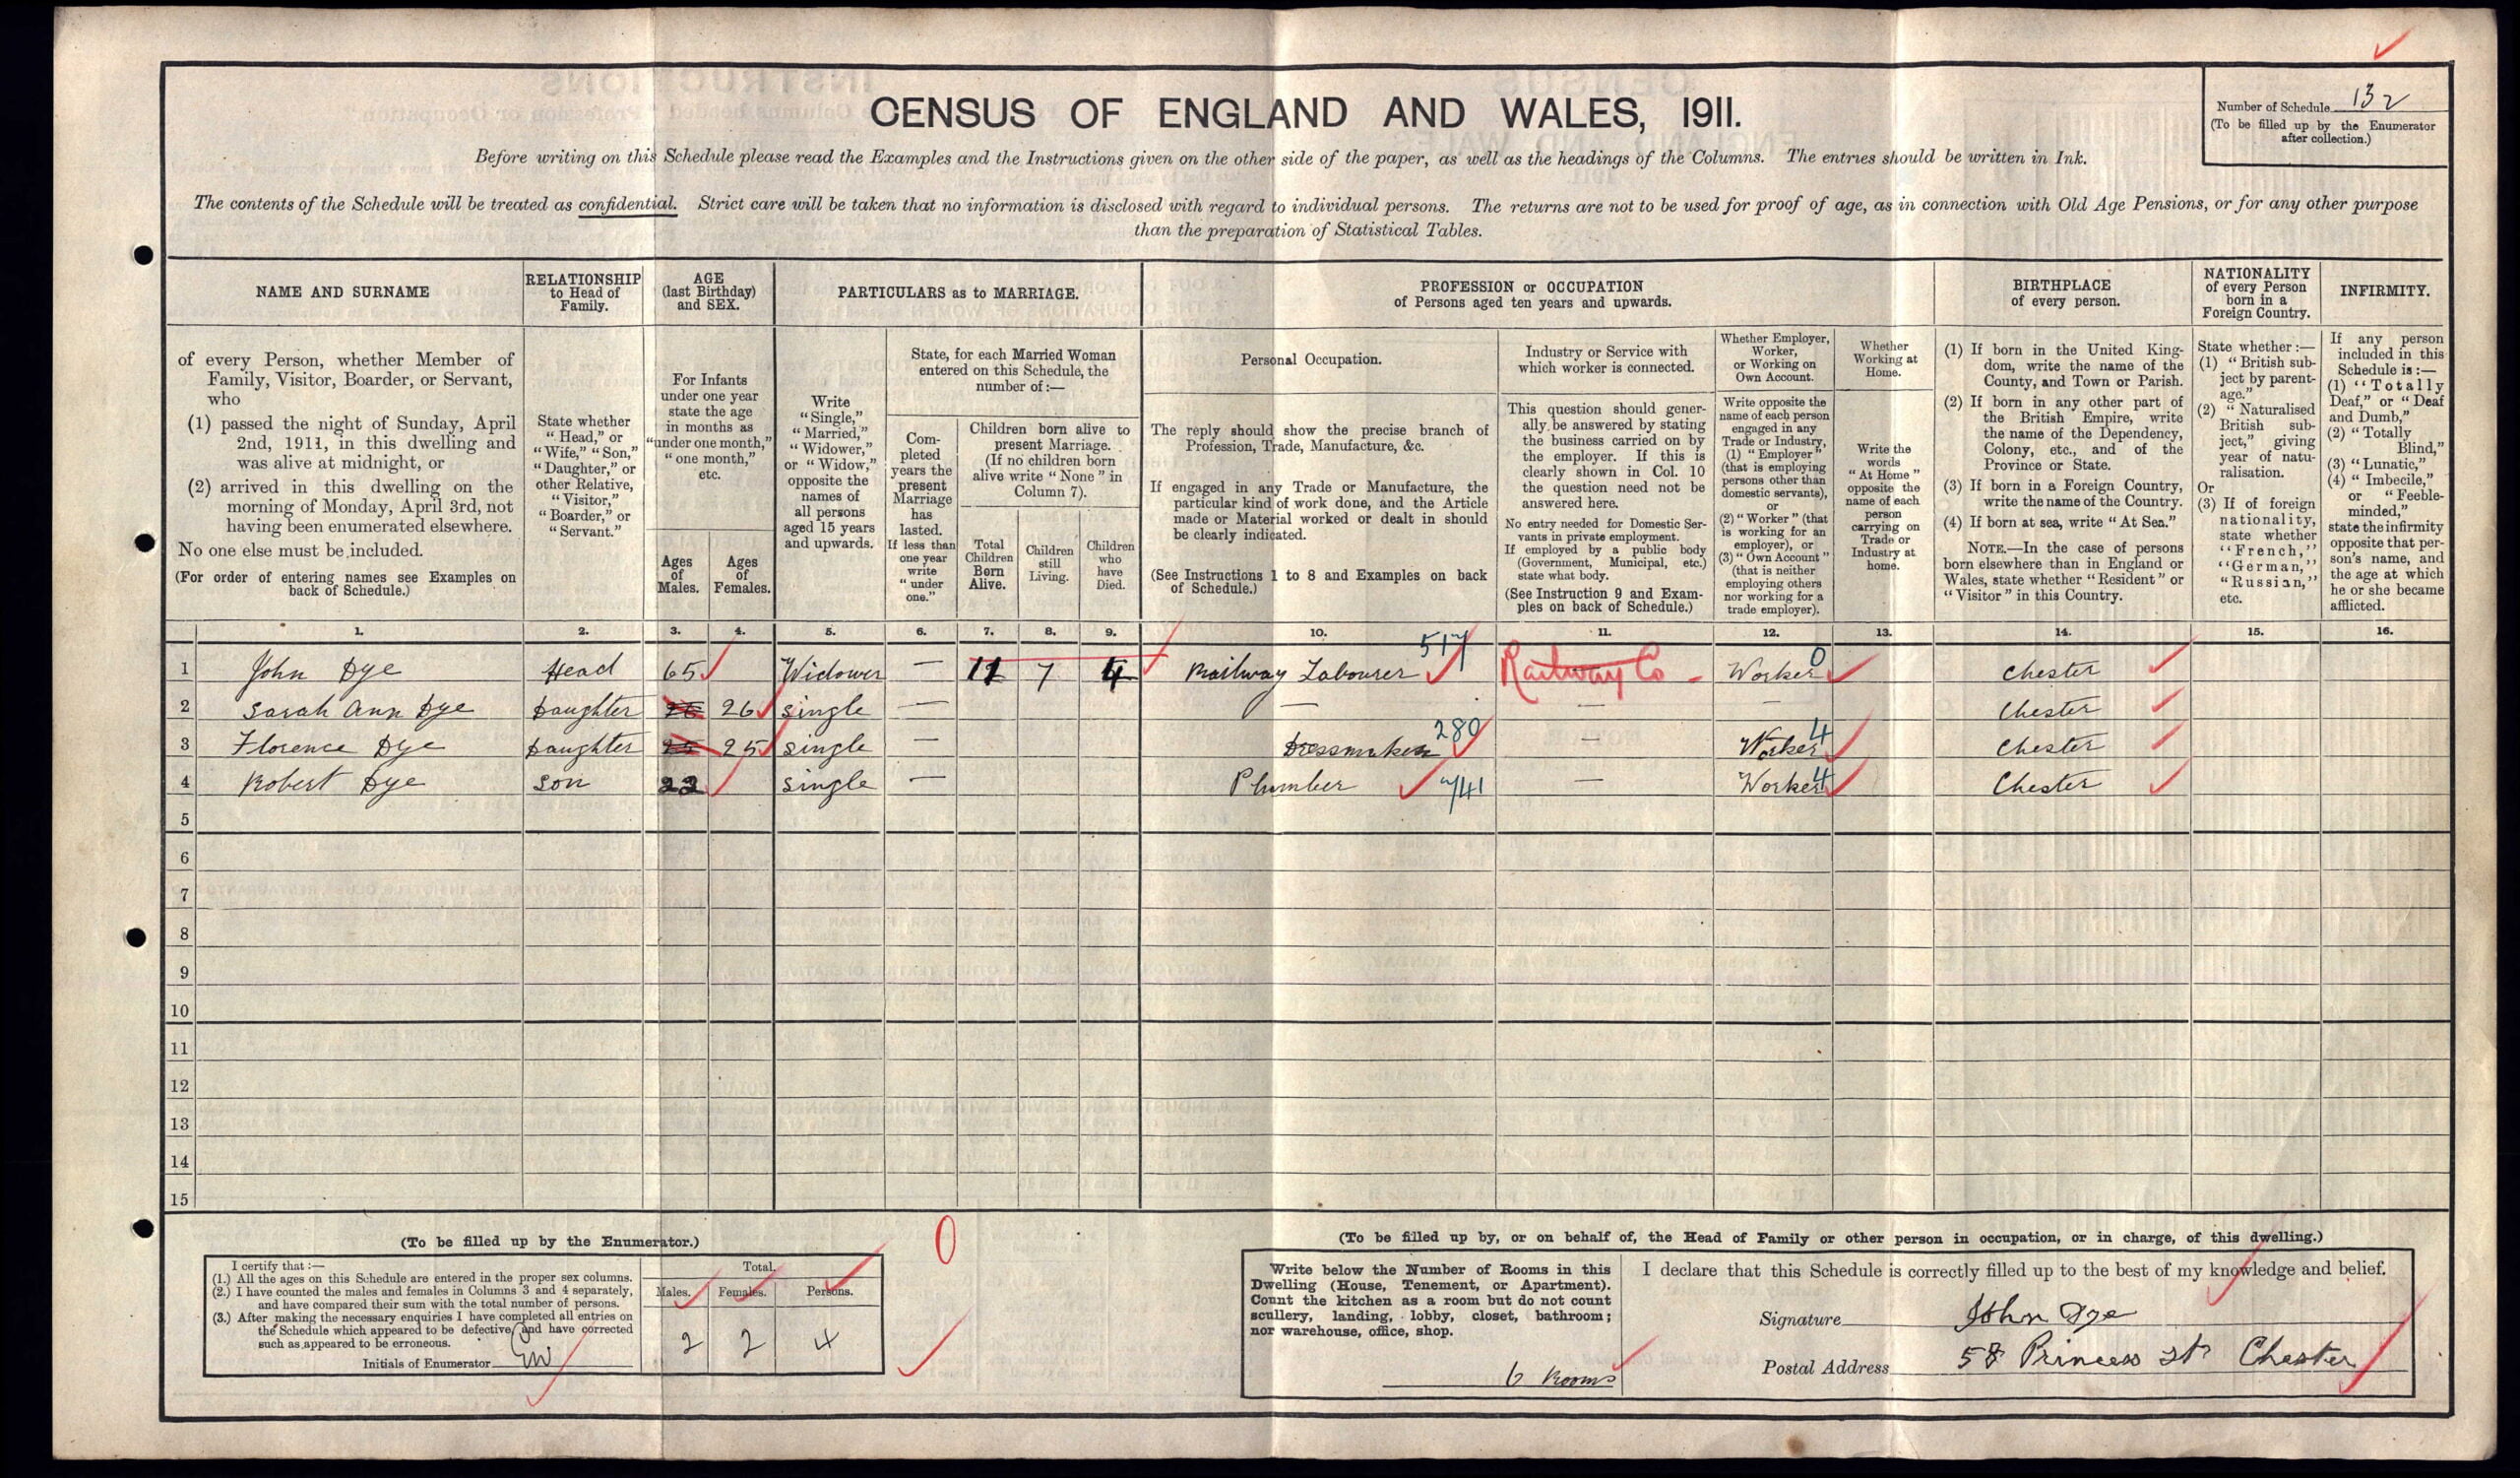 CENSUS OF ENGLAND AND WALES, 1911.
Number of Schedule 132
(To be filled up by the Enumerator
after collection.)
Before writing on this Schedule please read the Examples and the Instructions given on the other side of the paper, as well as the headings of the Columns. The entries should be written in Ink.
The contents of the Schedule will be treated as confidential. Strict care will be taken that no information is disclosed with regard to individual persons. The returns are not to be used for proof of age, as in connection with Old Age Pensions, or for any other purpose
than the preparation of Statistical Tables.
NAME AND SURNAME
of every Person, whether Member of
Family, Visitor, Boarder, or Servant,
who
(1) passed the night of Sunday, April
2nd, 1911, in this dwelling and
was alive at midnight, or
(2) arrived in this dwelling on the
morning of Monday, April 3rd, not
having been enumerated elsewhere.
No one else must be included.
(For order of entering names see Examples on
back of Schedule.)
RELATIONSHIP
to Head of
Family.
State whether
"Head," or
"Wife," "Son,"
"Daughter," or
other Relative,
"Visitor,"
"Boarder," or
"Servant."
AGE
(last Birthday)
and SEX.
For Infants
under one year
state the age
in months as
"under one month,"
"one month,"
etc.
Ages
of
Males.
Ages
of
Females.
PARTICULARS as to MARRIAGE.
Write
"Single,"
"Married,"
"Widower,"
or "Widow,"
opposite the
names of
all persons
aged 15 years
and upwards.
State, for each Married Woman
entered on this Schedule, the
number of:—
Com-
pleted
years the
present
Marriage
has
lasted.
If less than
one year
write
"under
one."
Children born alive to
present Marriage.
(If no children born
alive write "None" in
Column 7).
Total
Children
Born
Alive.
Children
still
Living.
Children
who
have
Died.
PROFESSION or OCCUPATION
of Persons aged ten years and upwards.
Personal Occupation.
The reply should show the precise branch of
Profession, Trade, Manufacture, &c.
If engaged in any Trade or Manufacture, the
particular kind of work done, and the Article
made or Material worked or dealt in should
be clearly indicated.
(See Instructions 1 to 8 and Examples on back
of Schedule.)
Industry or Service with
which worker is connected.
This question should gener-
ally be answered by stating
the business carried on by
the employer. If this is
clearly shown in Col. 10
the question need not be
answered here.
No entry needed for Domestic Ser-
vants in private employment.
If employed by a public body
(Government, Municipal, etc.)
state what body.
(See Instruction 9 and Exam-
ples on back of Schedule.)
Whether Employer,
Worker,
or Working on
Own Account.
Write opposite the
name of each person
engaged in any
Trade or Industry,
(1) "Employer"
(that is employing
persons other than
domestic servants),
or
(2) "Worker" (that
is working for an
employer), or
(3) "Own Account"
(that is neither
employing others
nor working for a
trade employer).
Whether
Working at
Home.
Write the
words
"At Home"
opposite the
name of each
person
carrying on
Trade or
Industry at
home.
BIRTHPLACE
of every person.
(1) If born in the United King-
dom, write the name of the
County, and Town or Parish.
(2) If born in any other part of
the British Empire, write
the name of the Dependency,
Colony, etc., and of the
Province or State.
(3) If born in a Foreign Country,
write the name of the Country.
(4) If born at sea, write "At Sea."
NOTE.—In the case of persons
born elsewhere than in England or
Wales, state whether "Resident" or
"Visitor" in this Country.
NATIONALITY
of every Person
born in a
Foreign Country.
State whether:—
(1) "British sub-
ject by parent-
age."
(2) "Naturalised
British sub-
ject," giving
year of natu-
ralisation.
Or
(3) If of foreign
nationality,
state whether
"French,"
"German,"
"Russian,"
etc.
INFIRMITY.
If any person
included in this
Schedule is:—
(1) "Totally
Deaf," or "Deaf
and Dumb,"
(2) "Totally
Blind,"
(3) "Lunatic,"
(4) "Imbecile,"
or "Feeble-
minded,"
state the infirmity
opposite that per-
son's name, and
the age at which
he or she became
afflicted.
1. 2. 3. 4. 5. 6. 7. 8. 9. 10. 11. 12. 13. 14. 15. 16.
1 John Dye Head 65 Widower — 11 7 4 Railway Labourer 517 Railway Co - Worker 0 Chester
2 Sarah Ann Dye Daughter 26 26 single — — — — Chester
3 Florence Dye Daughter 25 25 single — Dressmaker 280 — Worker 4 Chester
4 Robert Dye Son 22 single — Plumber 741 — Worker 4 Chester
5
6
7
8
9
10
11
12
13
14
15
(To be filled up by the Enumerator.)
I certify that:—
(1.) All the ages on this Schedule are entered in the proper sex columns.
(2.) I have counted the males and females in Columns 3 and 4 separately,
and have compared their sum with the total number of persons.
(3.) After making the necessary enquiries I have completed all entries on
the Schedule which appeared to be defective, and have corrected
such as appeared to be erroneous.
Initials of Enumerator EW
Total.
Males. Females. Persons.
2 2 4
0
(To be filled up by, or on behalf of, the Head of Family or other person in occupation, or in charge, of this dwelling.)
Write below the Number of Rooms in this
Dwelling (House, Tenement, or Apartment).
Count the kitchen as a room but do not count
scullery, landing, lobby, closet, bathroom;
nor warehouse, office, shop.
6 Rooms
I declare that this Schedule is correctly filled up to the best of my knowledge and belief.
Signature John Dye
Postal Address 58 Princess St Chester